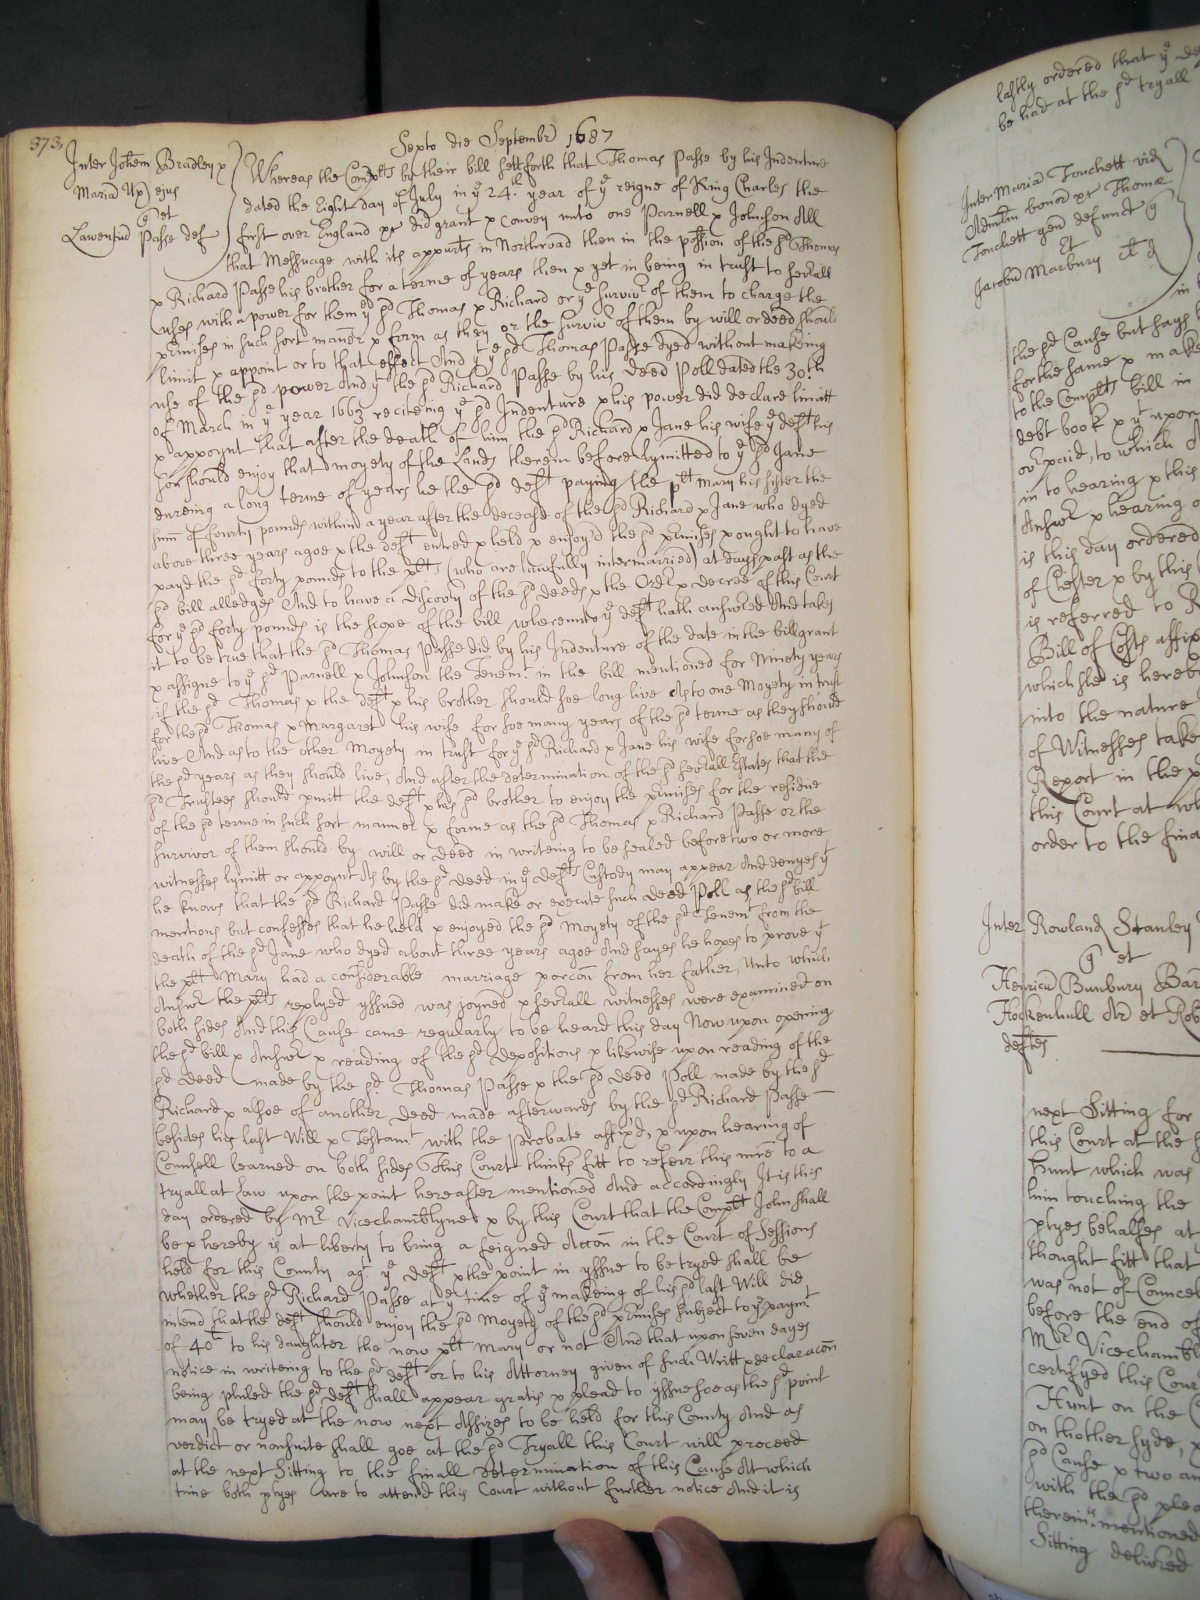 373
Sexto die Septembr 1687
Inter Johem Bradley x
Mariā Ux ejus
q et
Lawrentiū Passe def
Whereas the Complts by their bill sett forth that Thomas Passe by his Indenture
dated the Eight day of July in ye 24th year of ye reigne of King Charles the
first over England xr did grant x convey unto one Parnell x Johnson All
that Messuage with its appurts in Northroad then in the possion of the sd Thomas
x Richard Passe his brother for a terme of years then x yet in being in trust to severall
uses with a power for them ye sd Thomas x Richard or ye surviv of them to charge the
premises in such sort manner x form as they or the surviv of them by will or deed should
limit x appoint or to that effect And yt ye sd Thomas Passe dyed without makeing
use of the sd power And yt the sd Richard Passe by his Deed Poll dated the 30th
of March in ye year 1663 reciteing ye sd Indenture x his power did declare limitt
x appoynt that after the death of him the sd Richard x Jane his wife ye deft his
son should enjoy that moyety of the Lands therein before lymitted to ye sd Jane
dureing a long terme of years he the sd deft paying the plt Mary his sister the
sum of fourty pounds within a year after the decease of the sd Richard x Jane who dyed
above three years agoe x the deft entred x held x enjoyed the sd premises x ought to have
payd the sd forty pounds to the plts (who are lawfully intermarried) at days past as the
sd bill alledges And to have a discovry of the sd deeds x the Ordr x decree of this Court
for ye sd forty pounds is the scope of the bill whereunto ye deft hath answered And takes
it to be true that the sd Thomas Passe did by his Indenture of the date in the bill grant
x assigne to ye sd Parnell x Johnson the Tenemt in the bill mentioned for Ninety years
if the sd Thomas x the deft x his brother should soe long live As to one Moyety in trust
for the sd Thomas x Margaret his wife for soe many years of the sd terme as they should
live And as to the other Moyety in trust for ye sd Richard x Jane his wife for soe many of
the sd years as they should live, And after the determination of the sd severall Estates that the
sd Trustees should pmitt the deft x his sd brother to enjoy the premises for the residue
of the sd terme in such sort manner x forme as the sd Thomas x Richard Passe or the
survivor of them should by will or deed in writeing to be sealed before two or more
witnesses lymitt or appoynt As by the sd deed in ye defts Custody may appear And denyes yt
he knows that the sd Richard Passe did make or execute such deed Poll as the sd bill
mentions but confesses that he held x enjoyed the sd Moyety of the sd Tenemt from the
death of the sd Jane who dyed about three years agoe And sayes he hopes to prove yt
the plt Mary had a considerable marriage porcon from her father, Unto which
Answr the plts replyed yssued was joyned x severall witnesses were examined on
both sides And this Cause came regularly to be heard this day Now upon opening
the sd bill x Answr x reading of the sd depositions x likewise upon reading of the
sd deed made by the sd Thomas Passe x the sd deed Poll made by the sd
Richard x alsoe of another deed made afterwards by the sd Richard Passe
besides his last Will x Testamt with the Probate affixd, x upon hearing of
Counsell learned on both sides This Court thinks fitt to referr this mre to a
tryall at Law upon the point hereafter mentioned And accordingly It is this
day ordered by Mr Vicechamblyne x by this Court that the Complt John shall
be x hereby is at liberty to bring a feigned Accon in the Court of Sessions
held for this County agt ye deft x the point in yssue to be tryed shall be
whether the sd Richard Passe at ye time of ye makeing of his sd last Will did
intend that the deft should enjoy the sd Moyety of the sd premises subject to ye paymt
of 40l to his daughter the now plt Mary or not And that upon seven dayes
notice in writeing to the sd deft or to his Attorney given of such Writt x declaracon
being philed the sd deft shall appear gratis x plead to yssue soe as the sd point
may be tryed at the now next Assizes to be held for this County And as
verdict or nonsuite shall goe at the sd Tryall this Court will proceed
at the next Sitting to the finall determination of this Cause At which
time both ptyes are to attend this Court without further notice And it is
lastly ordered that ye
be had at the sd tryall
Inter Mariā Touchett vid
Admn bonor xr Thome
Touchett gen defunct q
Et
Jacobū Marbury
in
the sd Cause but says
for the same x mak
to the Complts bill in
debt book x yt upon
ovr paid, to which
in to hearing x this
Answr x hearing
is this day ordered
of Chester x by this
is referred to R
Bill of Costs affix
which she is hereb
into the nature
of Witnesses take
Report in the
this Court at wh
order to the fina
Inter Rowland Stanley
q et
Henricū Bunbury Bar
Hockenhull Ar et Rob
deftes
next Sitting for
this Court at the
Hunt which was
him touching the
ptyes behalfes at
thought fitt that
was not of Councel
before the end of
Mr Vicechambl
certifyed this Cour
Hunt on the
on thother syde,
sd Cause x two an
with the sd plea
therein mentioned
Sitting delivred